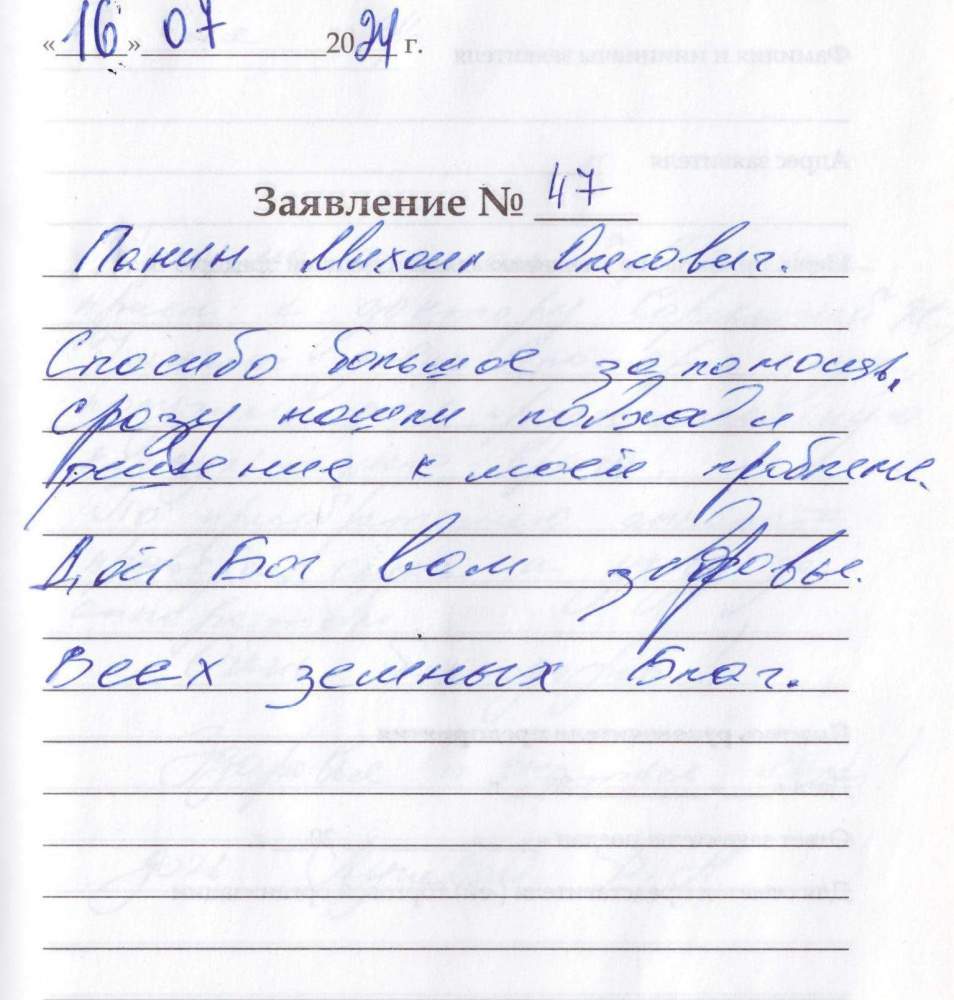 «16» 07 2024 г.
Заявление № 47
Панин Михаил Олегович.
Спасибо большое за помощь,
сразу нашли подход и
решение к моей проблеме.
Дай Бог вам здоровье.
Всех земных Благ.